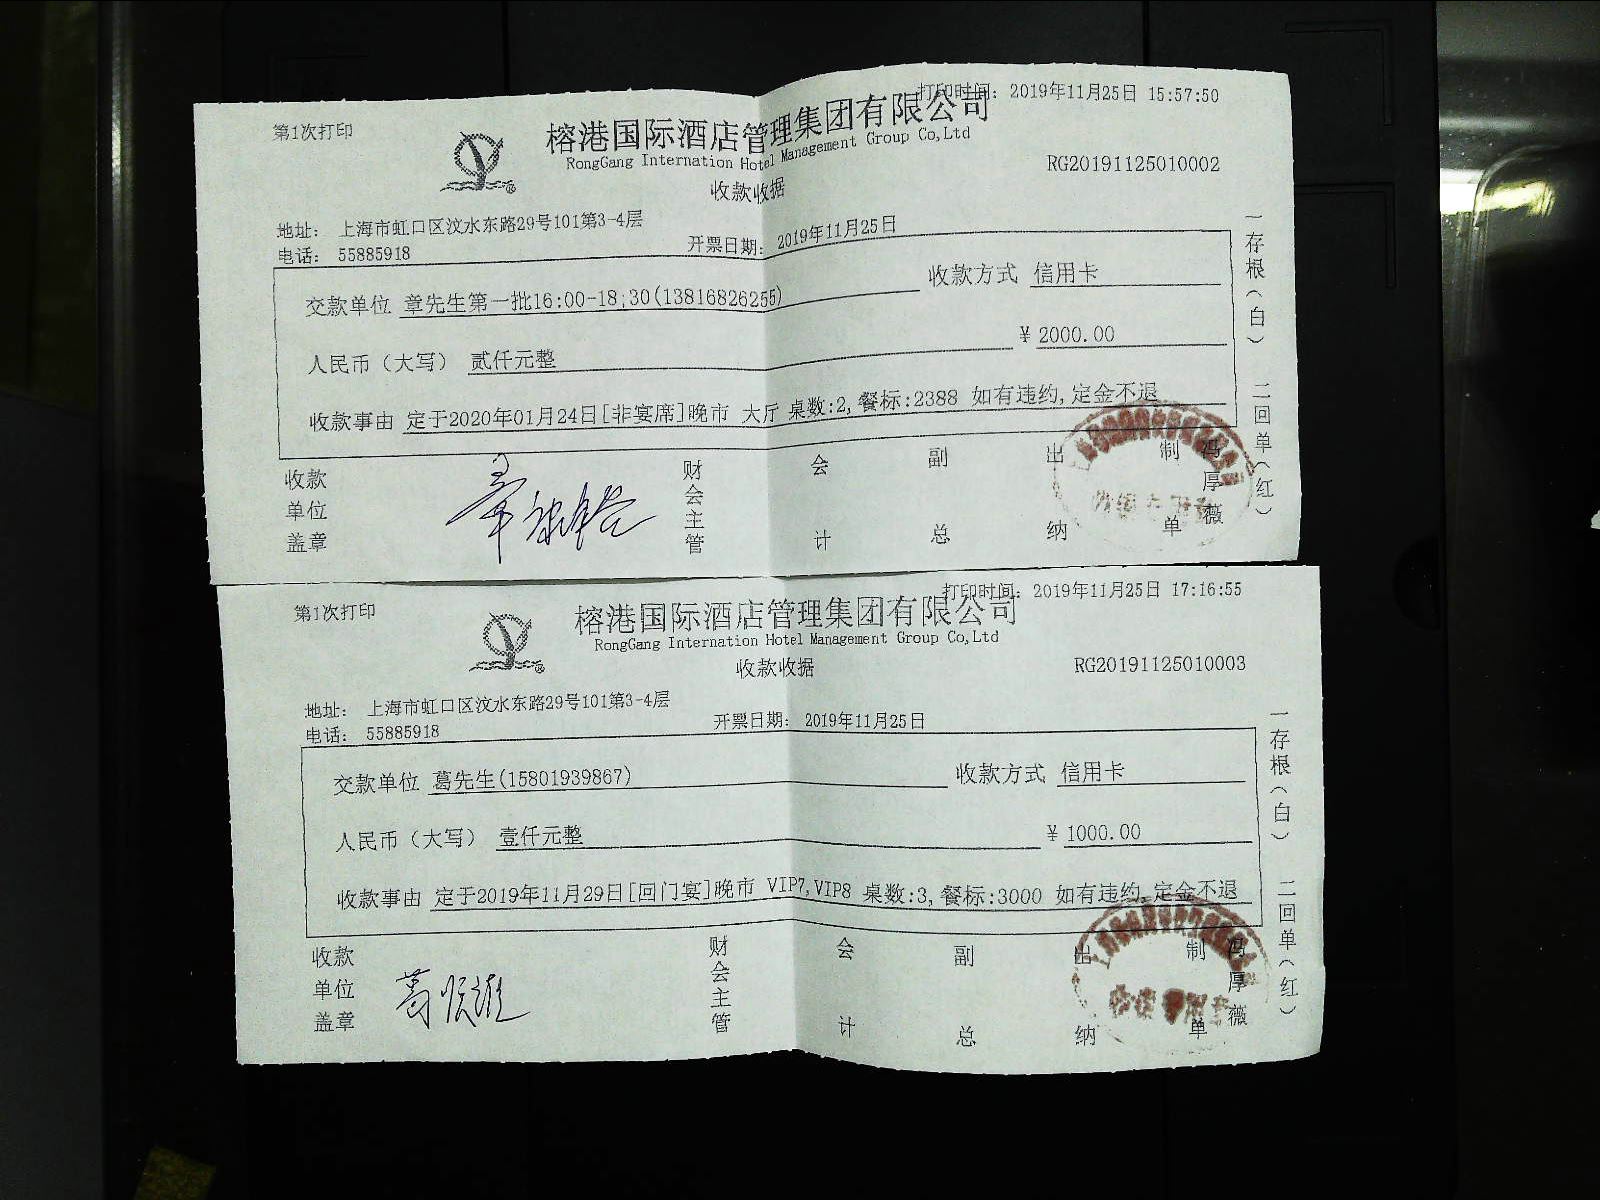 第1次打印
打印时间: 2019年11月25日 15:57:50
榕港国际酒店管理集团有限公司
RongGang Internation Hotel Management Group Co,Ltd
RG20191125010002
收款收据
地址: 上海市虹口区汶水东路29号101第3-4层
电话: 55885918
开票日期: 2019年11月25日
交款单位 章先生第一批16:00-18:30(13816826255)
收款方式 信用卡
人民币（大写） 贰仟元整
¥ 2000.00
收款事由 定于2020年01月24日[非宴席]晚市 大厅 桌数:2,餐标:2388 如有违约,定金不退
一存根（白） 二回单（红）
收款单位盖章
财会主管
会计
副总
出纳
制单
冯厚薇
第1次打印
打印时间: 2019年11月25日 17:16:55
榕港国际酒店管理集团有限公司
RongGang Internation Hotel Management Group Co,Ltd
收款收据
RG20191125010003
地址: 上海市虹口区汶水东路29号101第3-4层
电话: 55885918
开票日期: 2019年11月25日
交款单位 葛先生(15801939867)
收款方式 信用卡
人民币（大写） 壹仟元整
¥ 1000.00
收款事由 定于2019年11月29日[回门宴]晚市 VIP7,VIP8 桌数:3,餐标:3000 如有违约,定金不退
一存根（白） 二回单（红）
收款单位盖章
财会主管
会计
副总
出纳
制单
冯厚薇